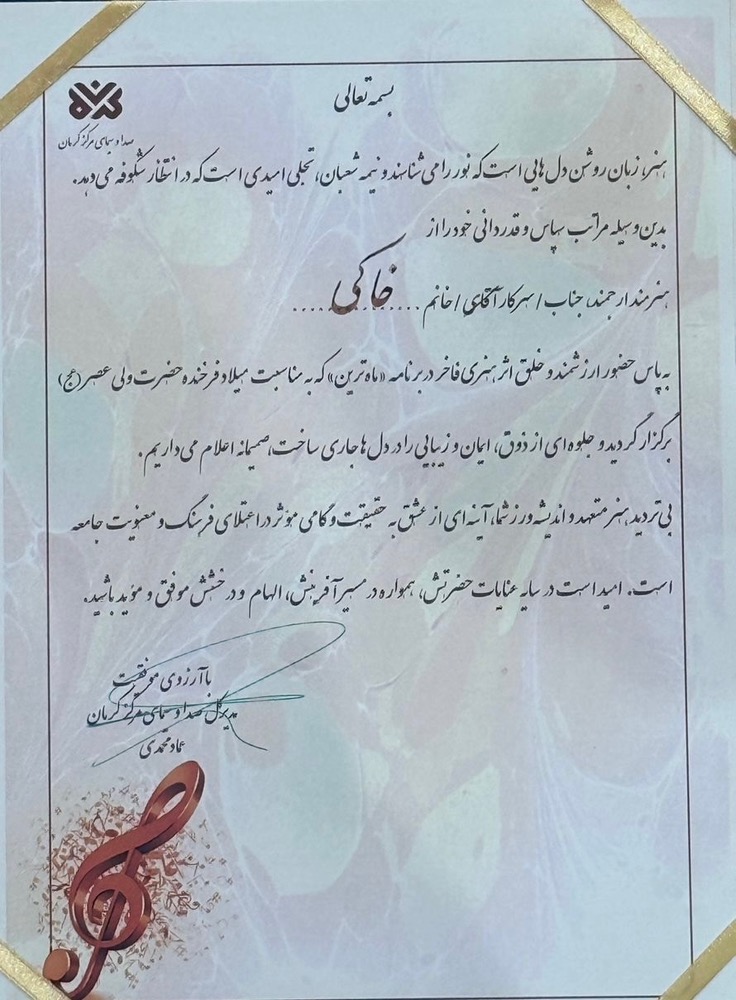 بسمه تعالی
صدا و سیمای مرکز کرمان
هنر، زبان روشن دل هایی است که نور را می شناسند و نیمه شعبان، تجلی امیدی است که در انتظار شکوفه می دهد.
بدین وسیله مراتب سپاس و قدردانی خود را از
هنرمند ارجمند، جناب / سرکار آقای / خانم ..... خاکی .....
به پاس حضور ارزشمند و خلق اثر هنری فاخر در برنامه «ماه ترین» که به مناسبت میلاد فرخنده حضرت ولی عصر (عج)
برگزار گردید و جلوه ای از ذوق، ایمان و زیبایی را در دل ها جاری ساخت، صمیمانه اعلام می داریم.
بی تردید، هنر متعهد و اندیشه ورز شما، آینه ای از عشق به حقیقت و گامی موثر در اعتلای فرهنگ و معنویت جامعه
است. امید است در سایه عنایات حضرتش، همواره در مسیر آفرینش، الهام و درخشش موفق و موید باشید.
با آرزوی موفقیت
مدیرکل صدا و سیمای مرکز کرمان
عماد محمدی